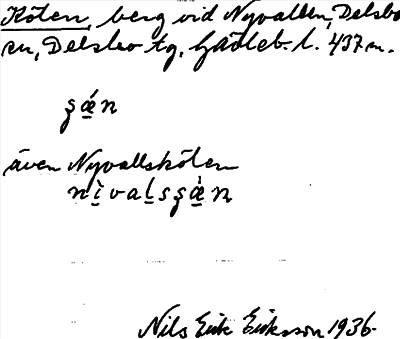 Kölen, berg vid Nyvallen, Delsbo
sn, Delsbo tg, Gävleb. l. 437 m.
ʂǽ̠n
även Nyvallskölen
nì̠valsʂæ̠̀n
Nils Erik Eriksson 1936.